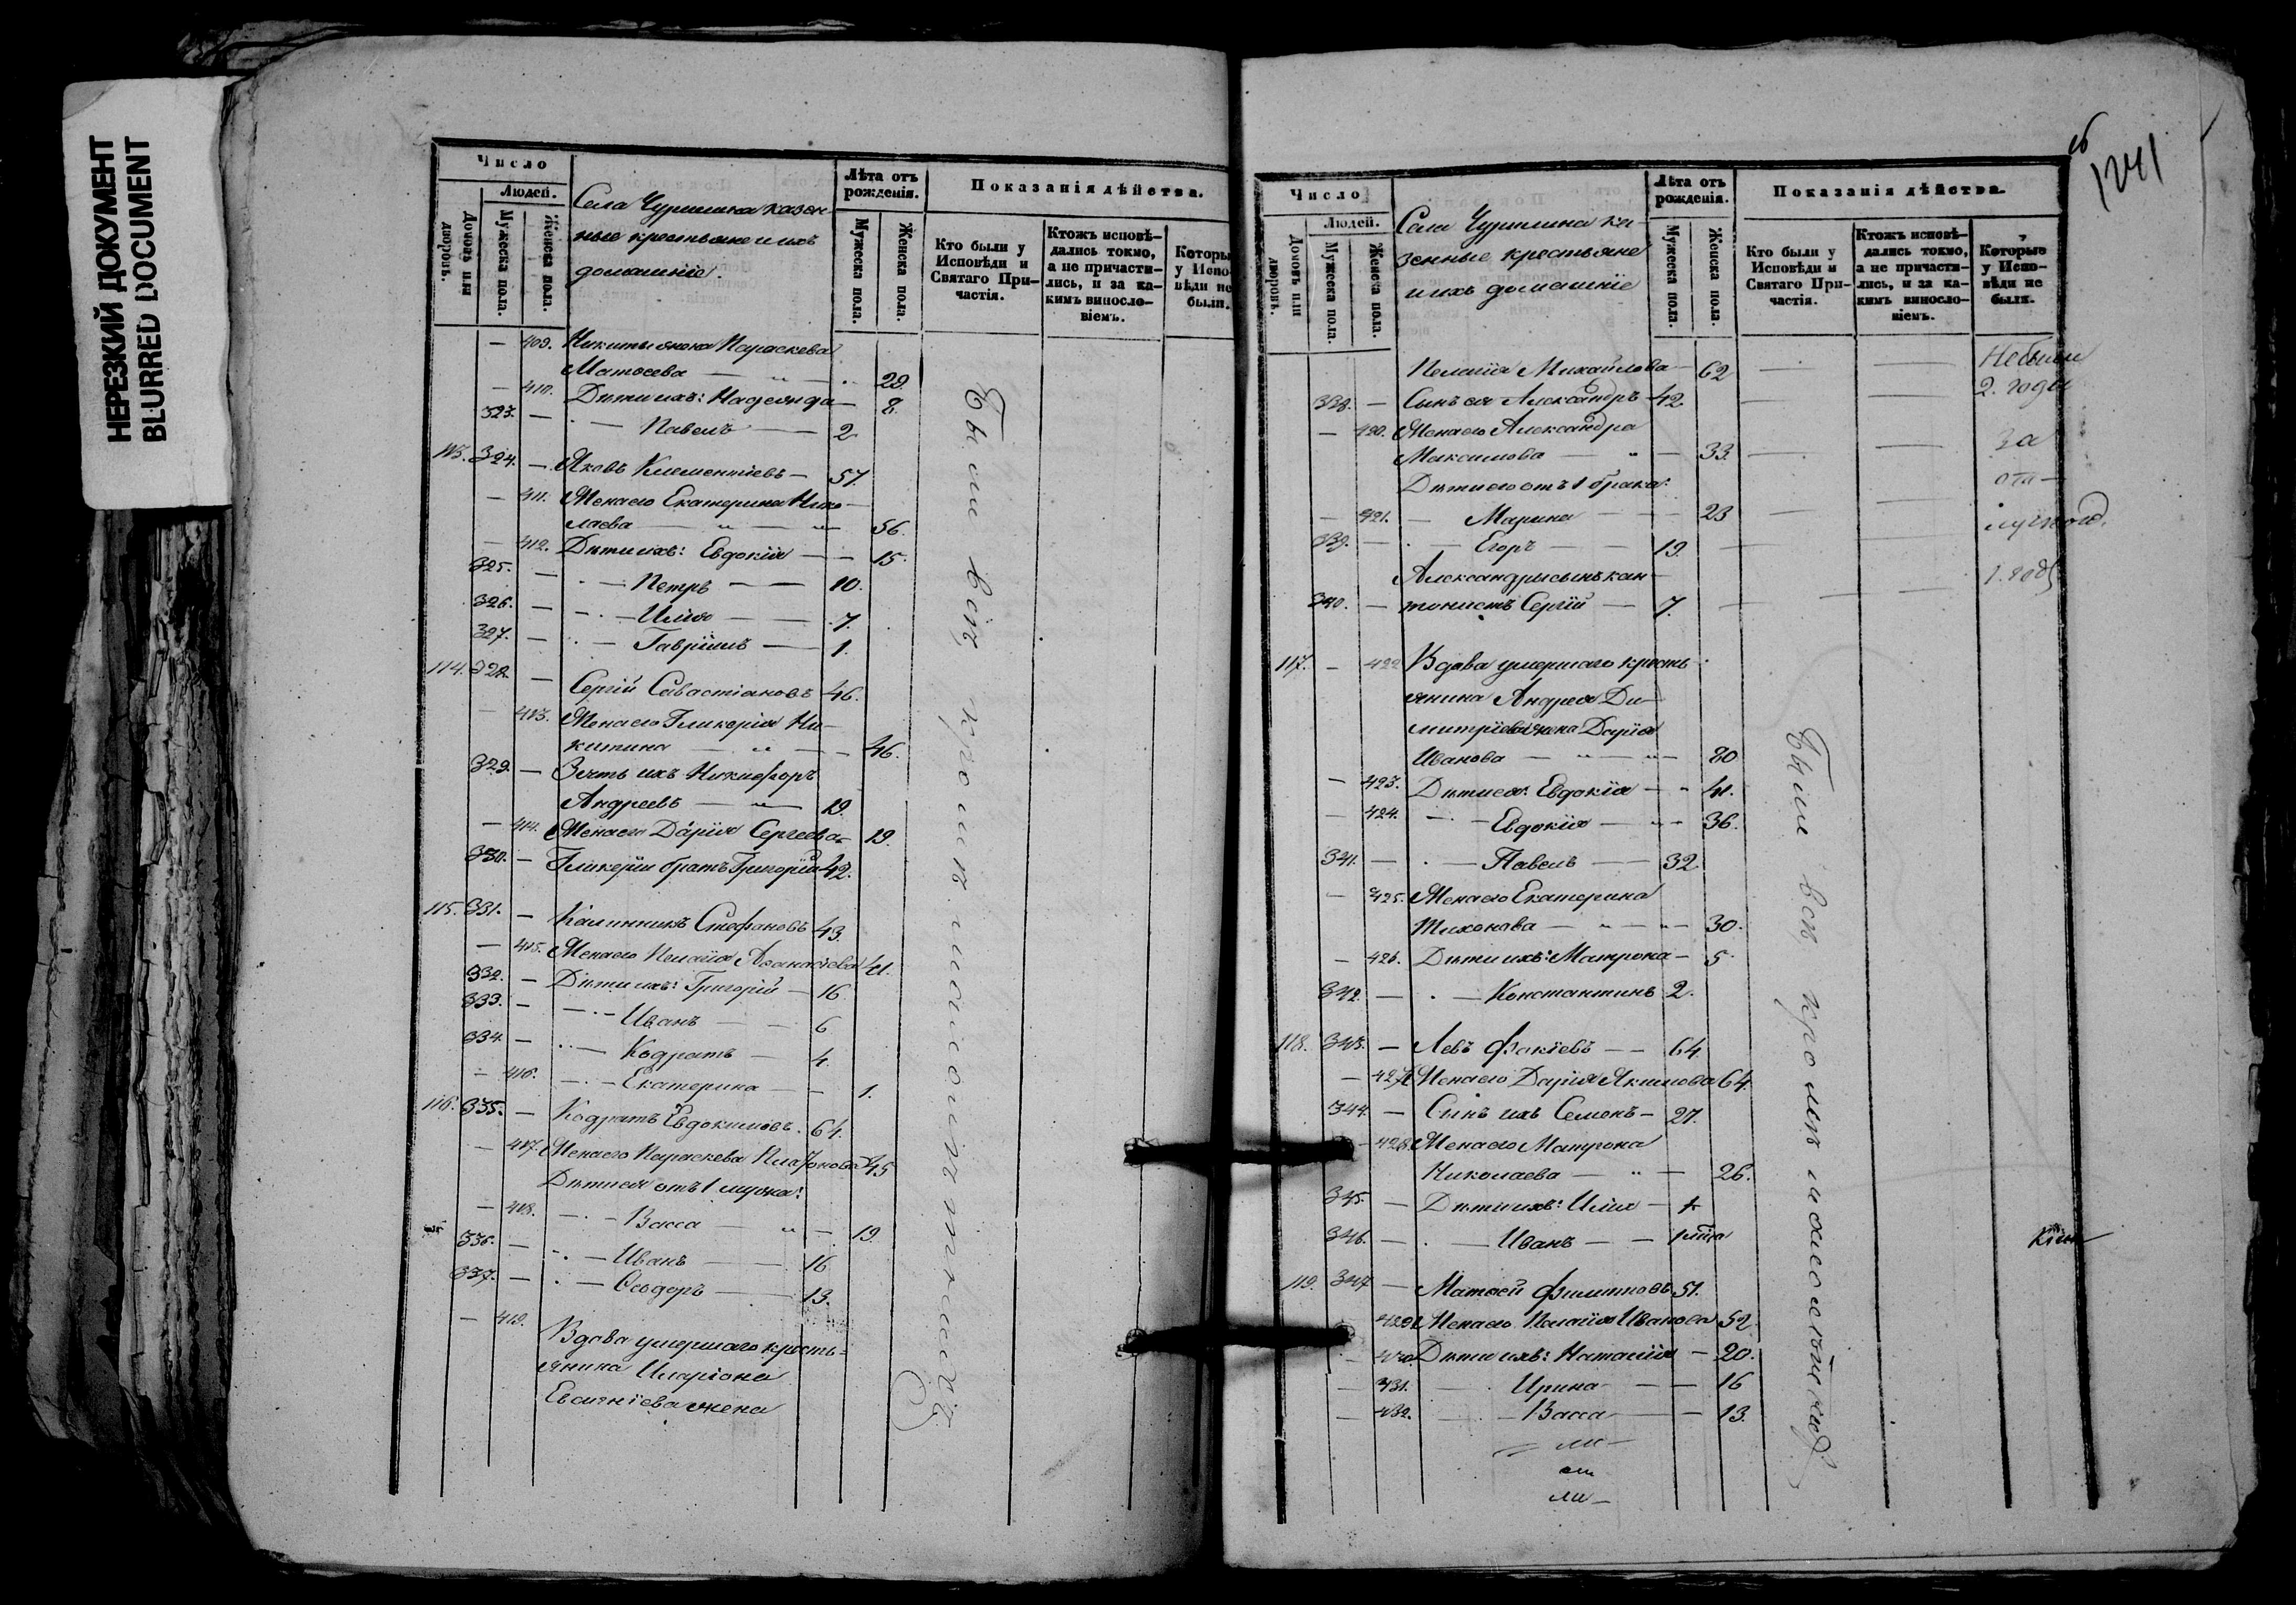 НЕРЕЗКИЙ ДОКУМЕНТ
BLURRED DOCUMENT
Число
Людей.
Домовъ или дворовъ.
Мужеска пола.
Женска пола.
Села Чурилина казен-
ные крестьяне и ихъ
домашніе.
Лѣта отъ рожденія.
Мужеска пола.
Женска пола.
Показанія дѣйства.
Кто были у Исповѣди и Святаго При-частія.
Ктожъ исповѣ-дались токмо, а не причасти-лись, и за ка-кимъ винosло-віемъ.
Которы у Испо-вѣди не были.
— 409. Никиты жена Параскева
Матѳеева — „ — 29.
— 410. Дѣти ихъ: Надежда — 8.
323. — Павелъ — 2
113. 324. — Яковъ Климентіевъ — 57.
— 411. Жена его Екатерина Нико-
лаева — „ — „ 56.
— 412. Дѣти ихъ: Евдокія — 15.
325. — Петръ — 10.
326. — Илія — 7.
327. — Гавріилъ — 1.
114. 328. — Сергій Савастіановъ 46.
— 413. Жена его Гликерія Ни-
китина — „ — 46.
329. — Зять ихъ Никифоръ
Андреевъ — „ — 19.
— 414. Жена его Дарія Сергеева 19.
330. — Гликеріи братъ Григорій 42.
115. 331. — Калинникъ Стефановъ 43.
— 415. Жена его Пелагія Аѳанасіева 41.
332. — Дѣти ихъ: Григорій — 16
333. — Иванъ — 6
334. — Кодратъ — 4.
— 416. — Екатерина — 1.
116. 335. — Кодратъ Евдокимовъ. 64.
— 417. Жена его Параскева Платонова 45
Дѣти ея отъ 1 мужа:
— 418. — Васса — „ — 19
336. — Иванъ — 16
337. — Ѳеодоръ — 13.
— 419. Вдова умершаго кресть-
янина Иларіона
жена
Были всѣ кромѣ малолѣтныхъ
1241
Число
Людей.
Домовъ или дворовъ.
Мужеска пола.
Женска пола.
Села Чурилина ка-
зенные крестьяне
и ихъ домашніе
Лѣта отъ рожденія.
Мужеска пола.
Женска пола.
Показанія дѣйства.
Кто были у Исповѣди и Святаго При-частія.
Ктожъ исповѣ-дались токмо, а не причасти-лись, и за ка-кимъ винosло-віемъ.
Которые у Испо-вѣди не были.
Пелагія Михайлова — 62 — — Небыли
338. — Сынъ ея Александръ 42 — — 2. года
— 420. Жена его Александра
Максимова — „ — 33. — — За
Дѣти его отъ 1 брака:
отл-
— 421. — Марина — 23 — —
339. — Егоръ — 19. — —
Александры сынъ кан- 1. годъ
340. — тонистъ Сергій — 7.
117. — 422 Вдова умершаго кресть-
янина Андрея Ди-
митріева жена Дарія
Иванова — „ — „ 80
— 423. Дѣти ея: Евдокія — 41.
— 424. — Евдокія — „ 36.
341. — Павелъ — 32
— 425. Жена его Екатерина
Тихонова — „ — „ 30.
— 426. Дѣти ихъ: Матрона — 5.
342. — Константинъ 2.
118. 343. — Левъ Фокіевъ — 64.
— 427. Жена его Дарія Акимова 64.
344. — Сынъ ихъ Семонъ — 27.
— 428. Жена его Матрона
Николаева — „ — 26.
345. — Дѣти ихъ: Илія —
346. — Иванъ —
119. 347 — Матѳей Филиповъ 51.
429. Жена его Пелагія Иванова 52
— 430. Дѣти ихъ: Наталія — 20.
— 431. — Ирина — 16
— 432. — Васса — 13.
Были всѣ кромѣ малолѣтныхъ